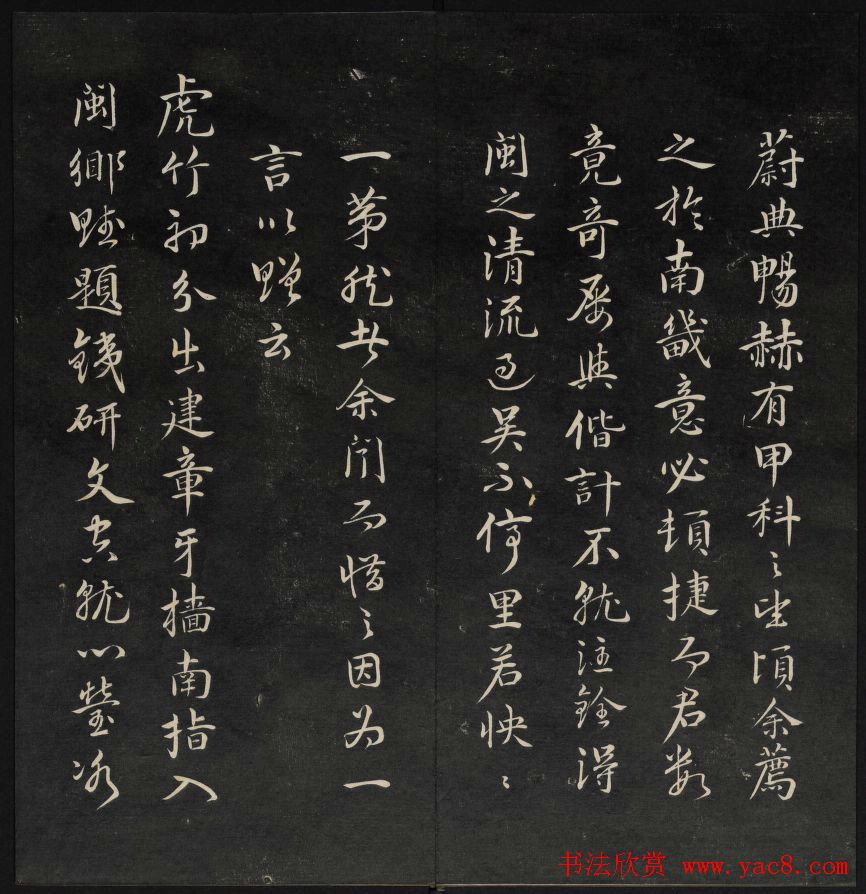 蔚典暢赫有甲科之望頃余薦
之於南畿意必頓捷而君數
竟奇屢與偕計不就注銓得
閩之清流過吳不停里若怏怏
一第然者余聞而惜之因為一
言以贈云
虎竹初分出建章牙檣南指入
閩鄉賦題錢研文空就心瑩冰
书法欣赏 www.yac8.com